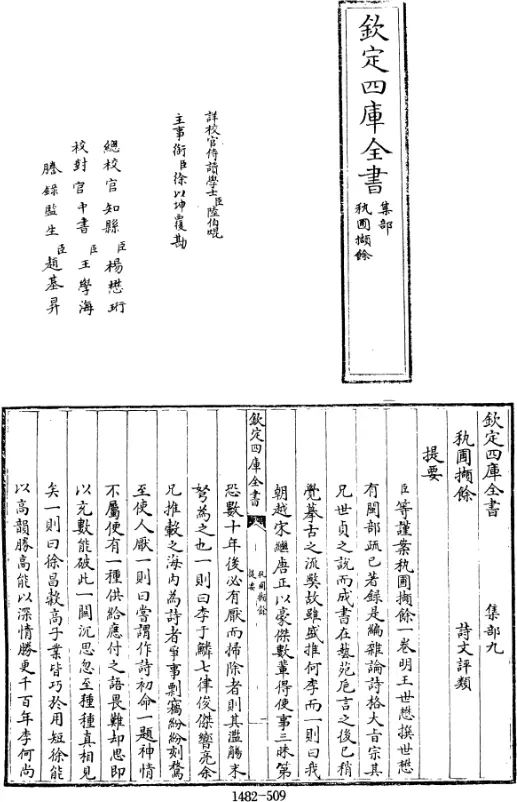 欽定四庫全書
集部
秇圃擷餘
詳校官侍讀學士臣陸伯焜
主事銜臣徐以坤覆勘
總校官知縣臣楊懋珩
校對官中書臣王學海
謄錄監生臣趙基昇
欽定四庫全書 集部九
秇圃擷餘 詩文評類
提要
臣等謹案秇圃擷餘一卷明王世懋撰世懋
有閩部疏已著錄是編雜論詩格大旨宗其
兄世貞之說而成書在藝苑卮言之後已稍
覺摹古之流弊故雖盛推何李而一則曰我
朝越宋繼唐正以豪傑數輩得使事三昧第
恐數十年後必有厭而掃除者則其濫觴末
欽定四庫全書
秇圃擷餘
提要
一
弩為之也一則曰李于鱗七律俊傑響亮余
兄推轂之海内為詩者爭事剽竊紛紛刻鶩
至使人厭一則曰嘗謂作詩初命一題神情
不屬便有一種供給應付之語畏難却思即
以充數能破此一關沉思忽至種種真相見
矣一則曰徐昌穀高子業皆巧於用短徐能
以高韻勝高能以深情勝更千百年李何尚
1482-509